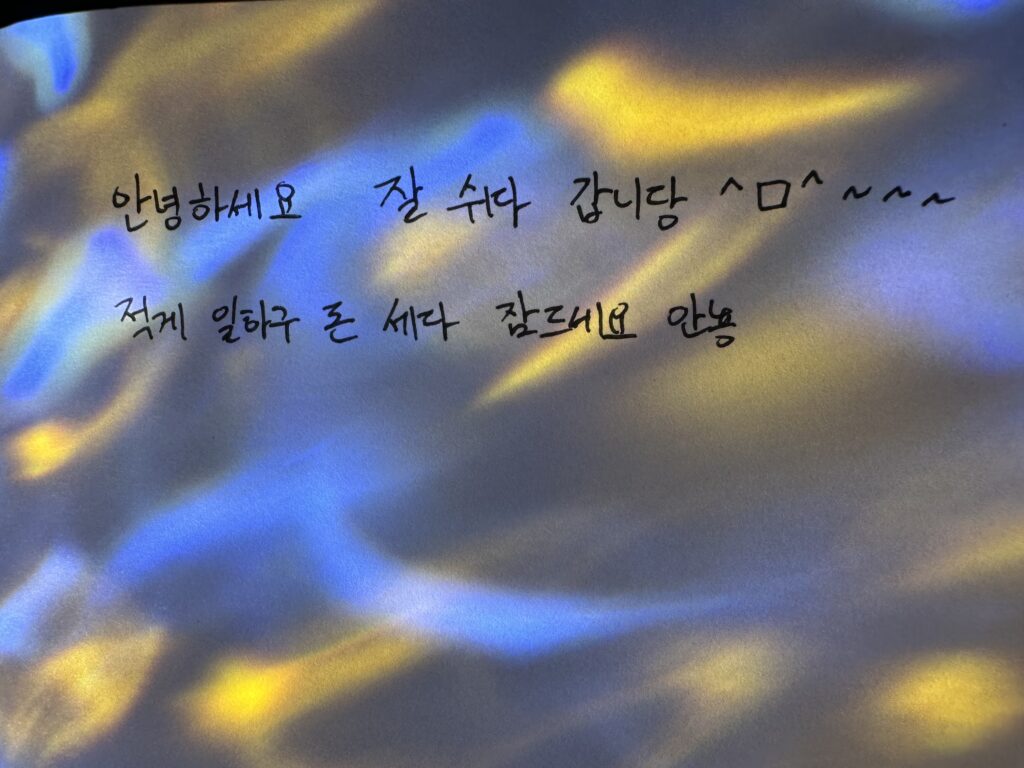 안녕하세요 잘 쉬다 갑니당 ^ㅁ^ ~ ~ ~
적게 일하구 돈 세다 잠드세요 안뇽